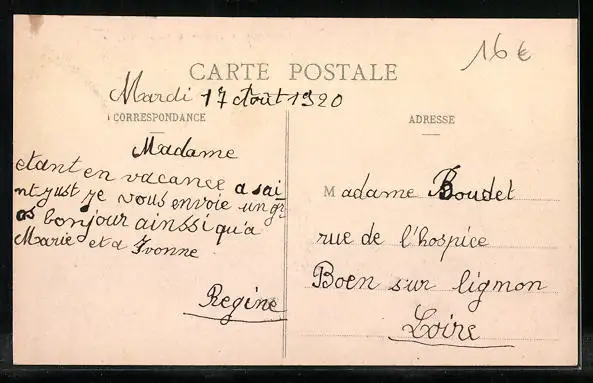 16€
CARTE POSTALE
Mardi 17 Août 1920
CORRESPONDANCE
ADRESSE
Madame
etant en vacance a sai
nt just je vous envoie un gr
os bonjour ainssi qu'a
Marie et a Yvonne
Regine
Madame Boudet
rue de l'hospice
Boen sur lignon
Loire